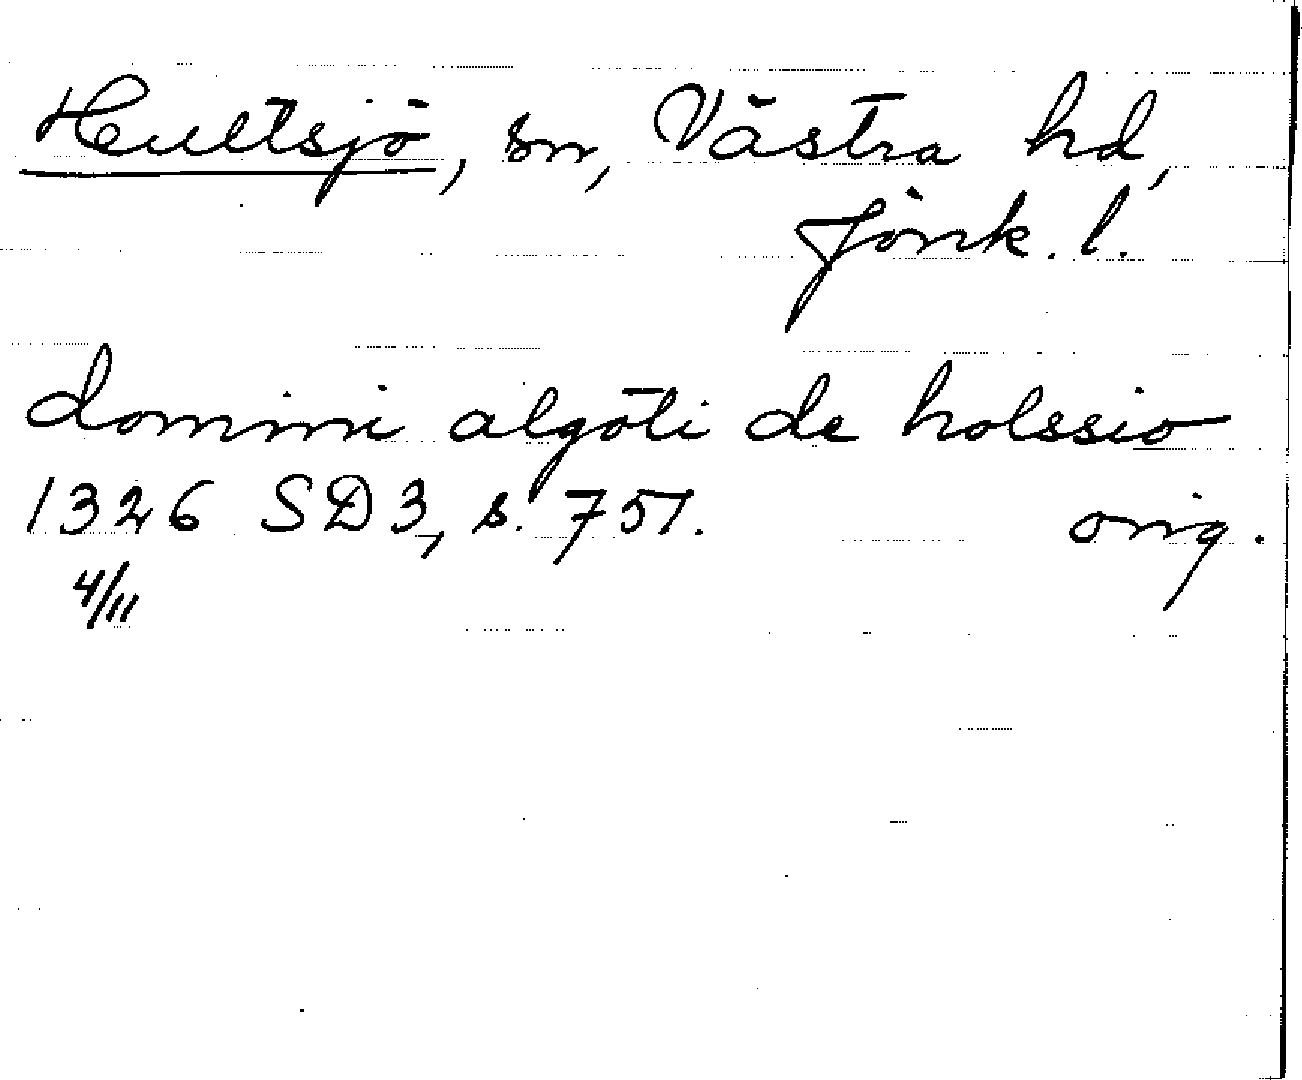 Hultsjö, sn, Västra hd,
Jönk. l.
domini algoti de holssio
1326 SD3, s. 751. orig.
4/11